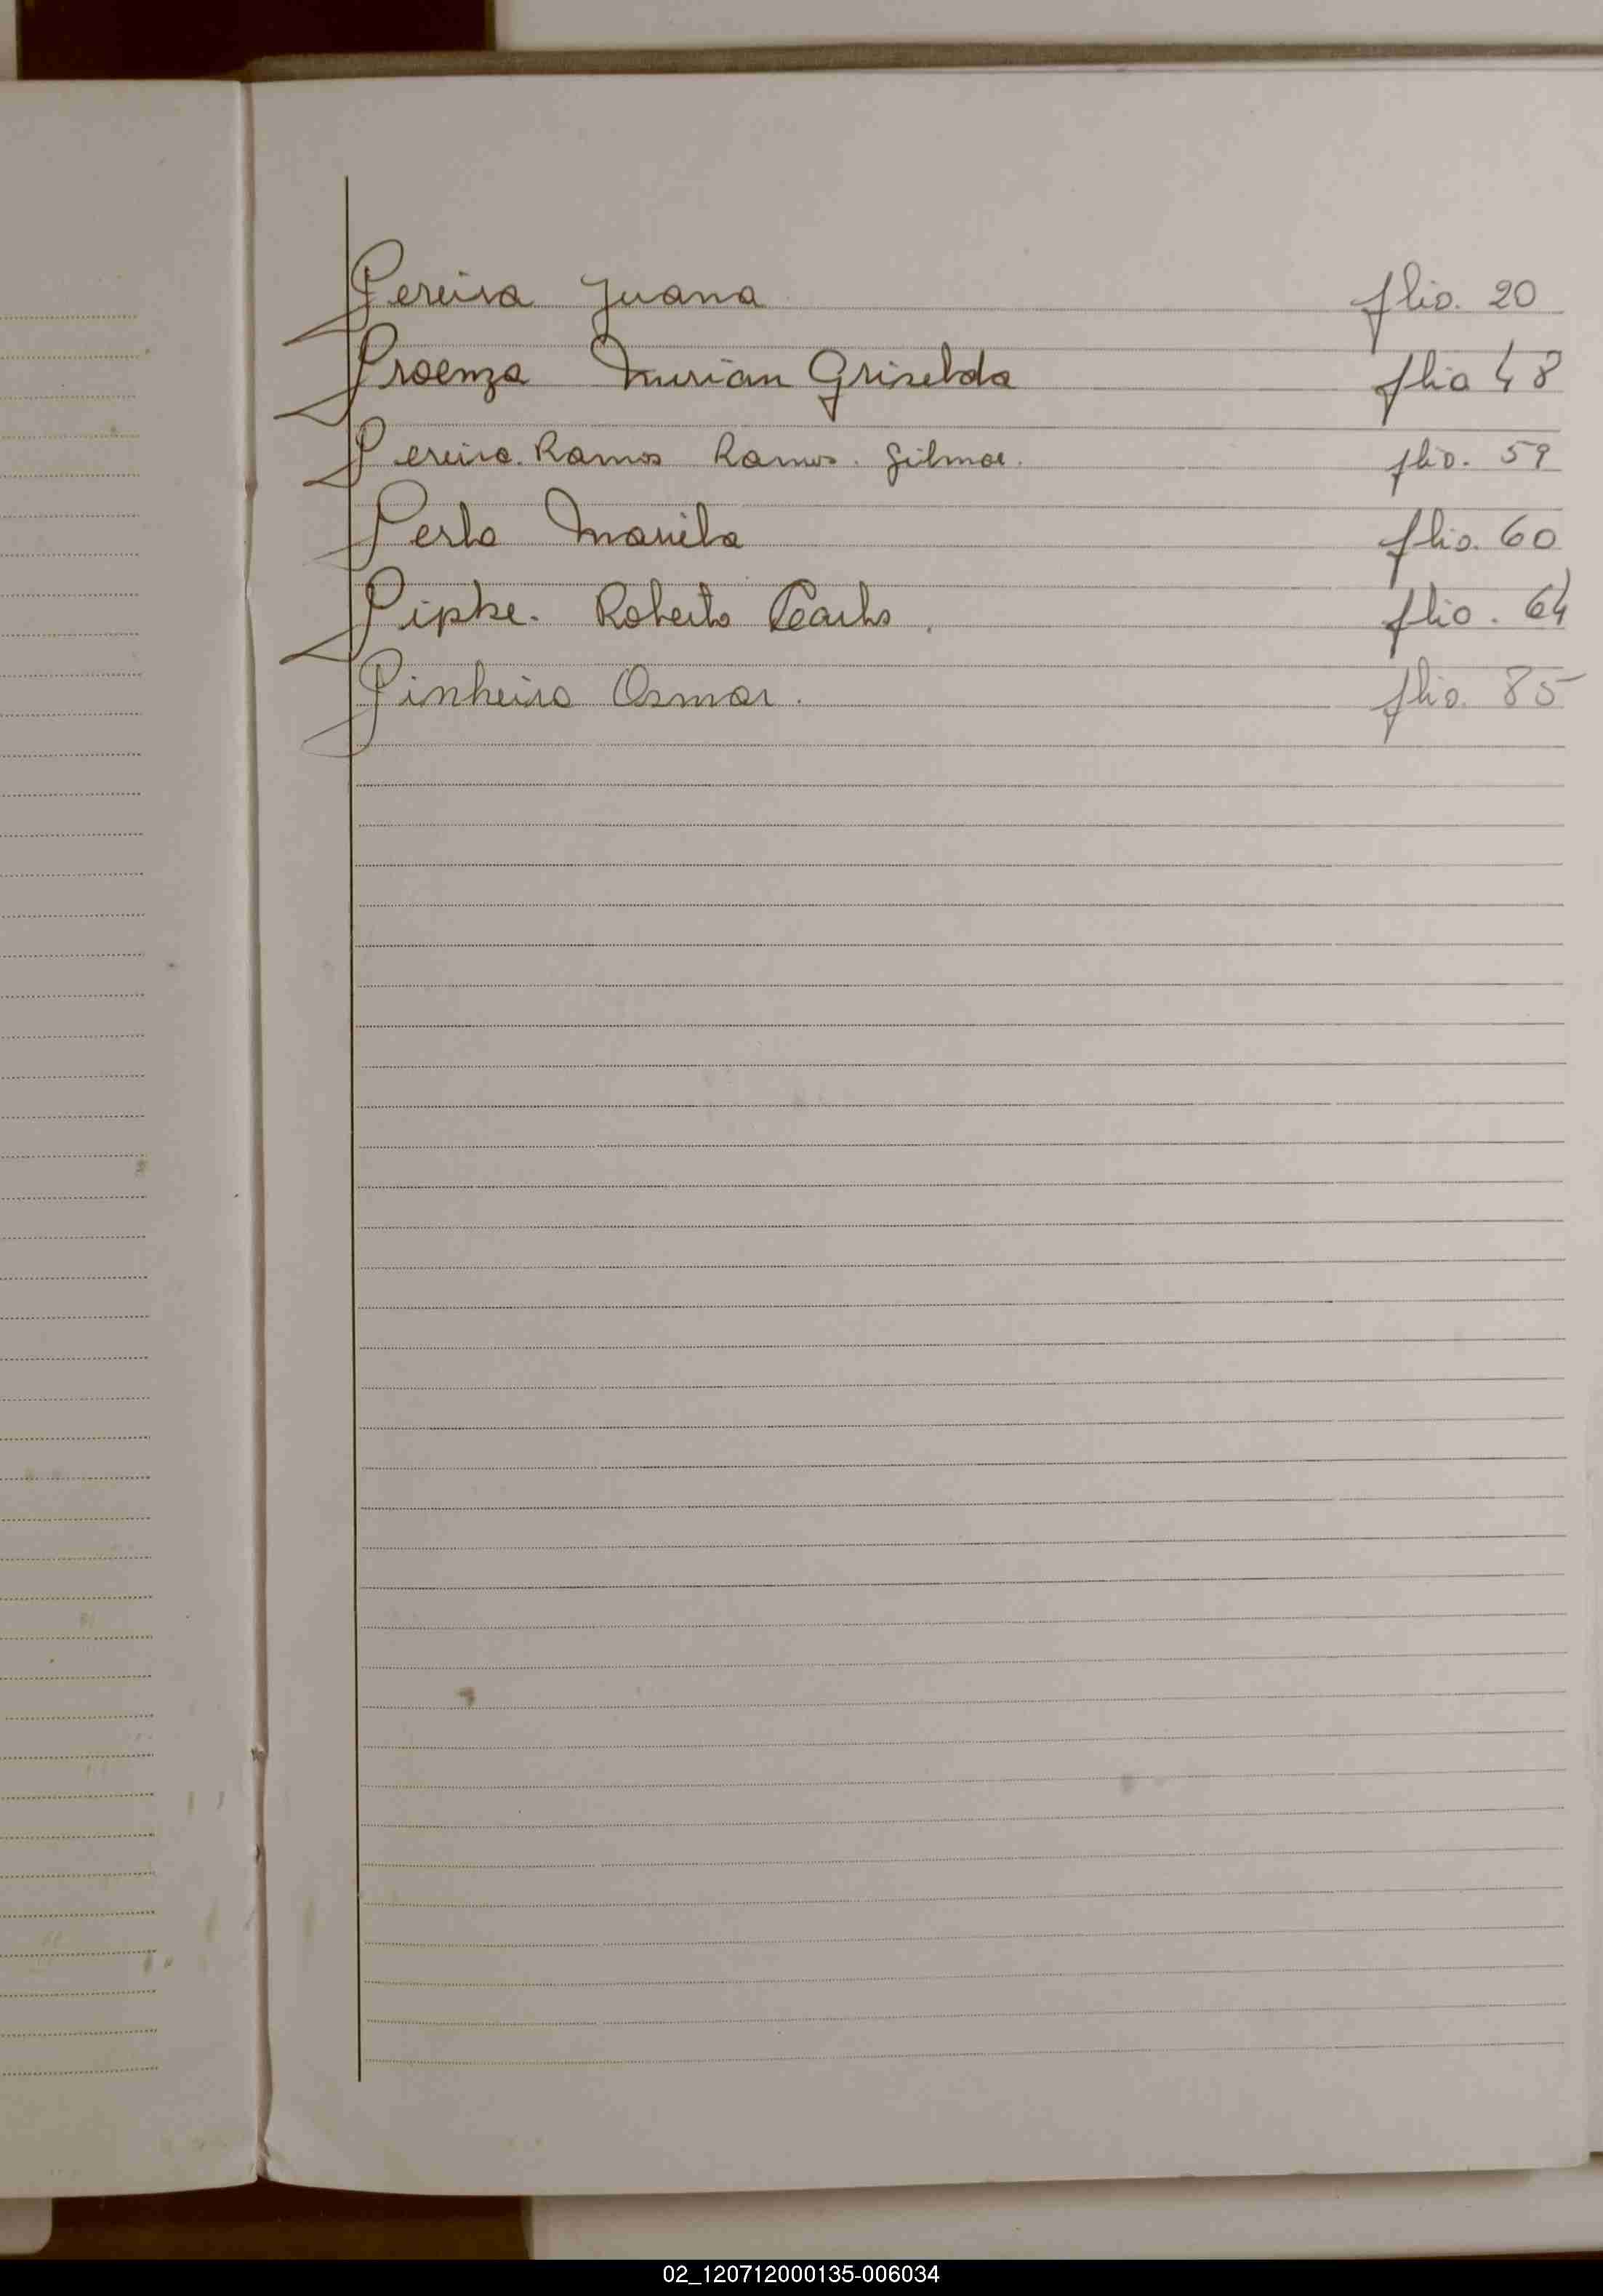 Pereira Juana flio. 20
Proenza Mirian Griselda flio 48
Pereira. Ramos Ramos. Gilmar. flio. 59
Perlo Mariela flio. 60
Pipke. Roberto Carlos. flio. 64
Pinheiro Osmar. flio. 85
02_120712000135-006034